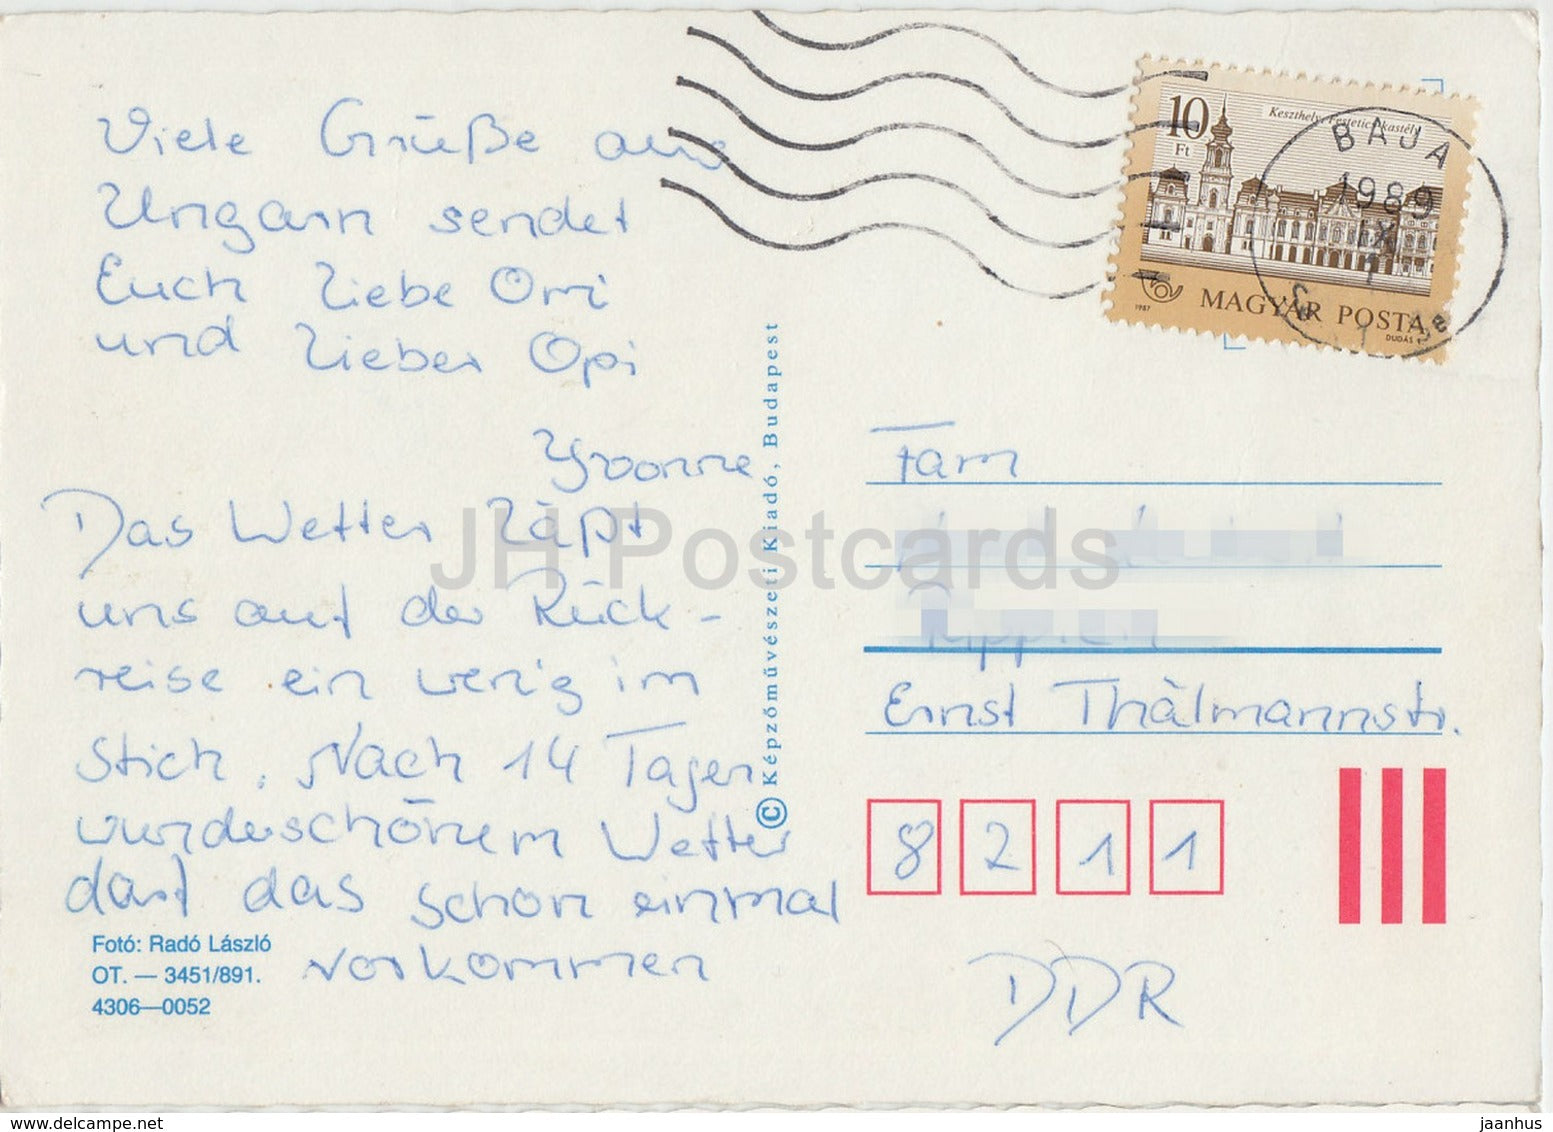 Viele Grüße aus
Ungarn sendet
Euch liebe Omi
und lieber Opi
Yvonne
Das Wetter läßt
uns auf der Rück-
reise ein wenig im
Stich. Nach 14 Tagen
wunderschönem Wetter
darf das schon einmal
vorkommen
Fotó: Radó László
OT. — 3451/891.
4306—0052
© Képzőművészeti Kiadó, Budapest
10
Ft
Keszthely, Festetics kastély
MAGYAR POSTA
1987
DUDÁS
BAJA
1989
IX
1
Fam
Ernst Thälmannstr.
8 2 1 1
DDR
JH Postcards
www.delcampe.net
jaanhus